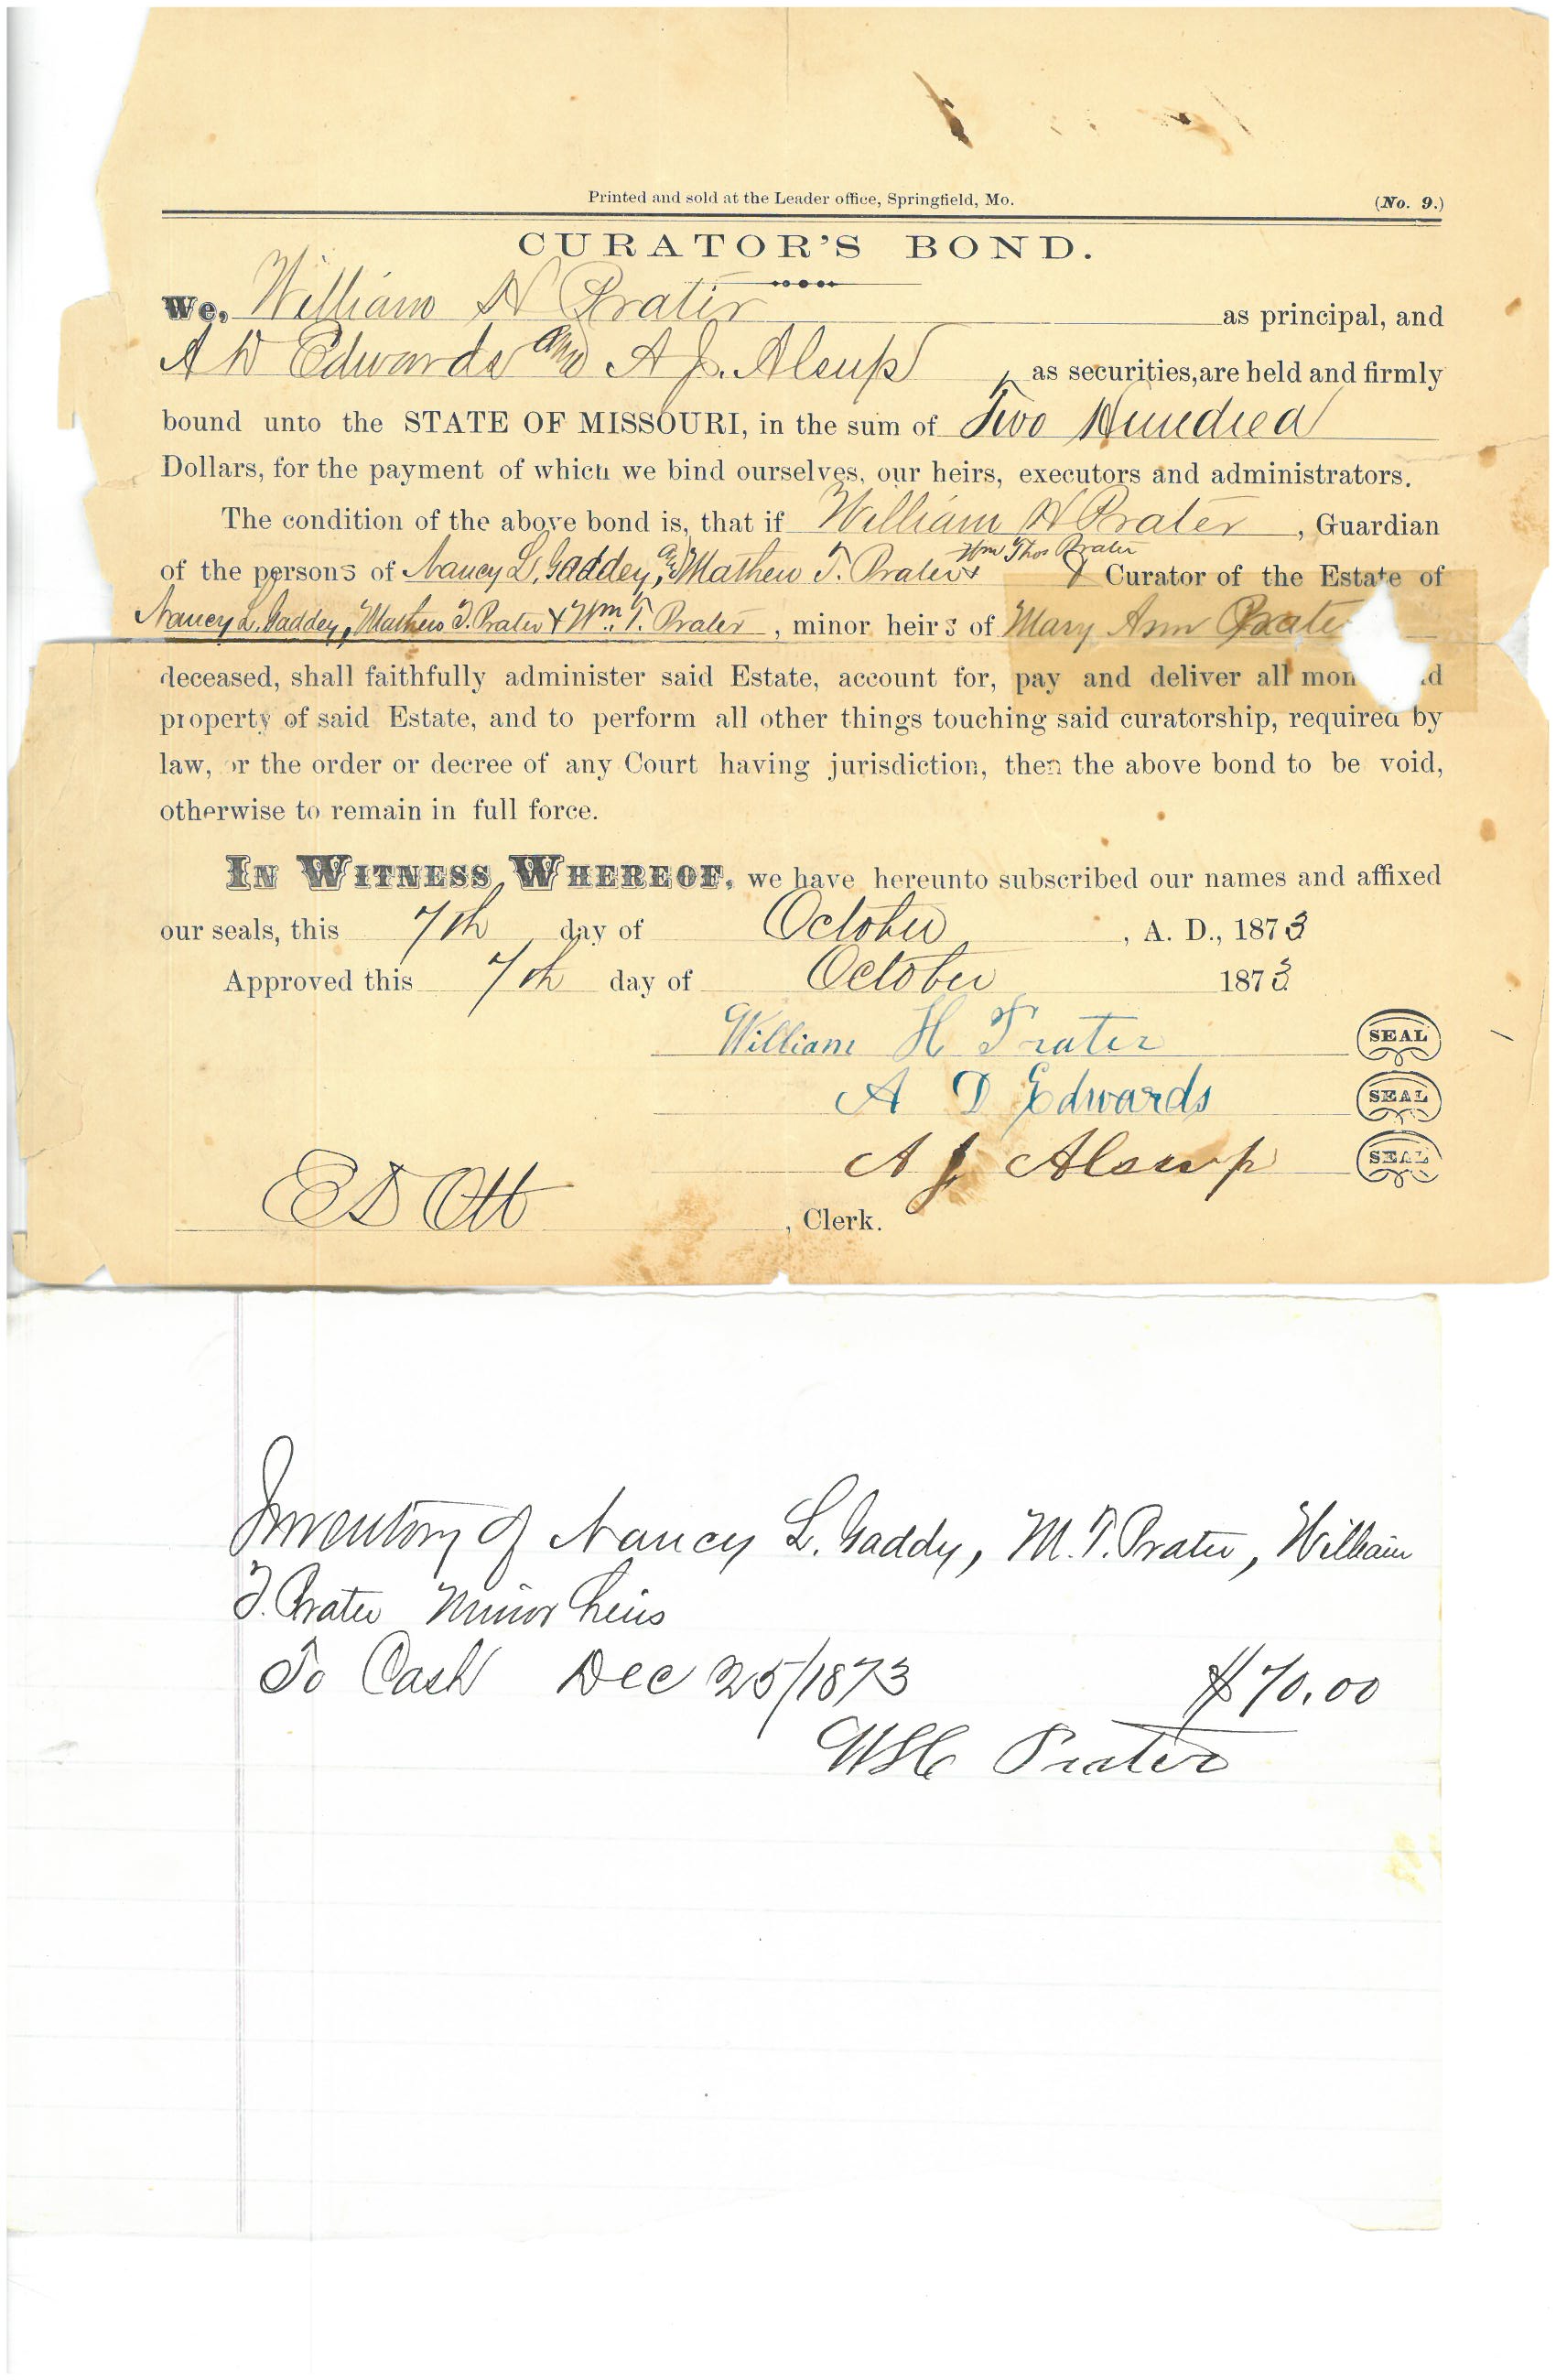 Printed and sold at the Leader office, Springfield, Mo. (No. 9.)
CURATOR'S BOND.
We, William H Prater as principal, and
A D Edwards and A. J. Alsup, as securities, are held and firmly
bound unto the STATE OF MISSOURI, in the sum of Two Hundred
Dollars, for the payment of which we bind ourselves, our heirs, executors and administrators.
The condition of the above bond is, that if William H Prater, Guardian
Wm Thos Prater
of the persons of Nancy L. Gaddey, & Mathew T. Prater & & Curator of the Estate of
Nancy L. Gaddey, Mathew T. Prater & Wm. T. Prater, minor heirs of Mary Ann Prate
deceased, shall faithfully administer said Estate, account for, pay and deliver all mon d
property of said Estate, and to perform all other things touching said curatorship, required by
law, or the order or decree of any Court having jurisdiction, then the above bond to be void,
otherwise to remain in full force.
IN WITNESS WHEREOF, we have hereunto subscribed our names and affixed
our seals, this 7th day of October, A. D., 1873
Approved this 7th day of October 1873
William H Prater SEAL
A D Edwards SEAL
A J Alsup SEAL
E D Ott, Clerk.
Inventory of Nancy L. Gaddy, M. T. Prater, William
T. Prater Minor heirs
To Cash Dec 25/1873 $70.00
W H Prater